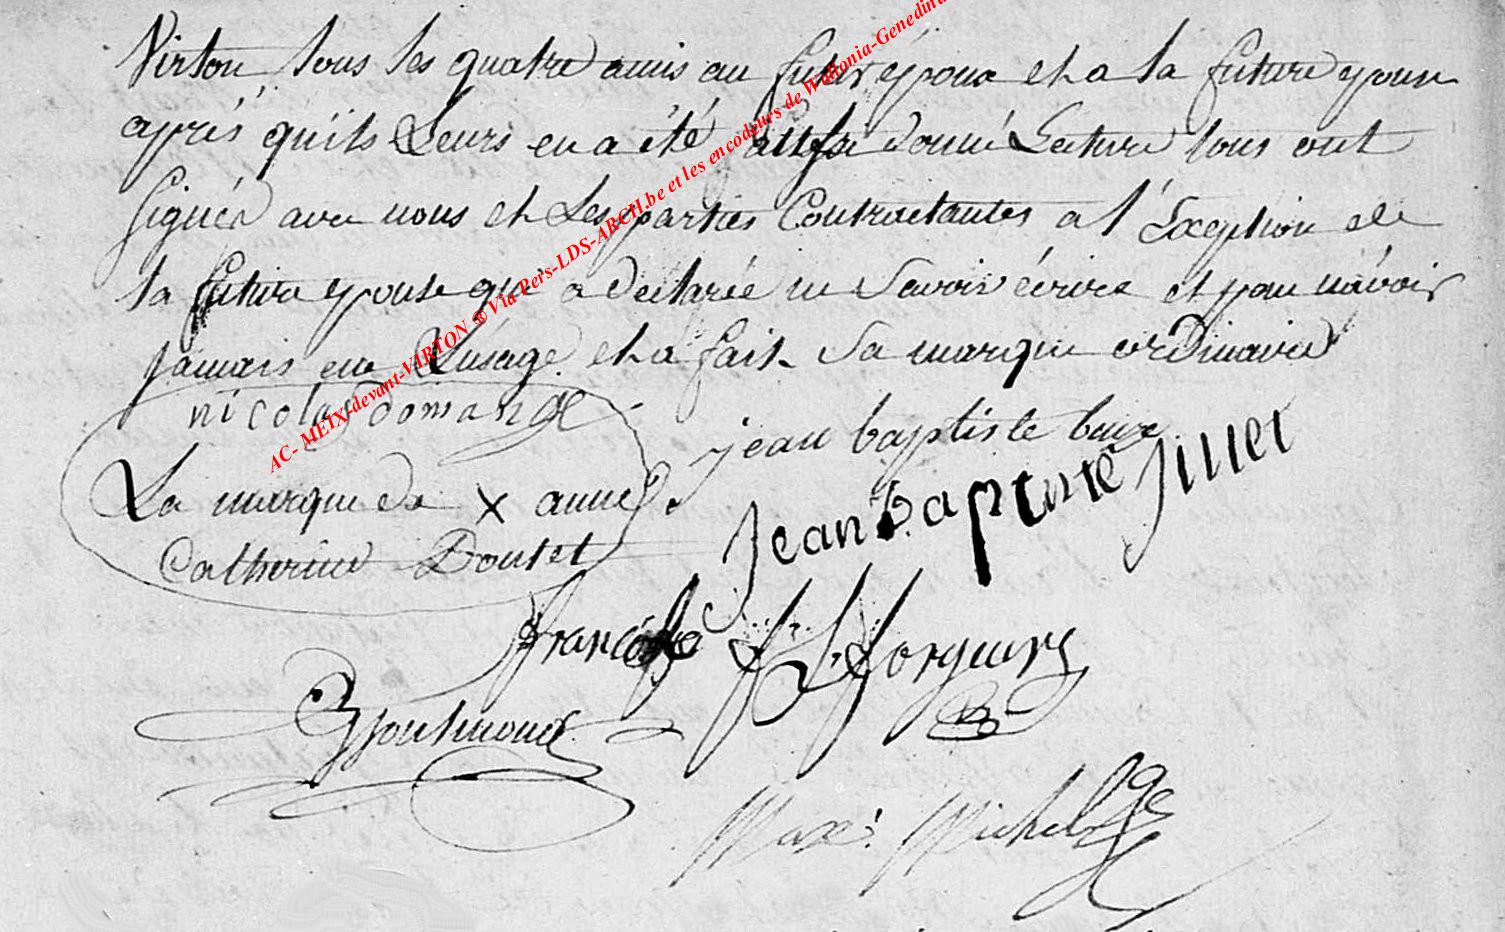 Virton tous les quatre amis au futur epoux et a la future epouse
après qu'ils Leurs en a été aussi donné Lecture tous ont
signés avec nous et Les parties Contractantes a l'Exeption de
la future epouse qui a declarée ne Savoir écrire et pour n'avoir
jamais eu L'usage et a fait Sa marque ordinaire
nicolas domange
jean baptiste
La marque de X anne
Jean baptiste
Catherine Doutet
françois
Maxi Michel
AC- MEIX-devant-VIRTON ®Via Pers-LDS-ARCH.be et les encodeurs de Wallonia-Genedinfo